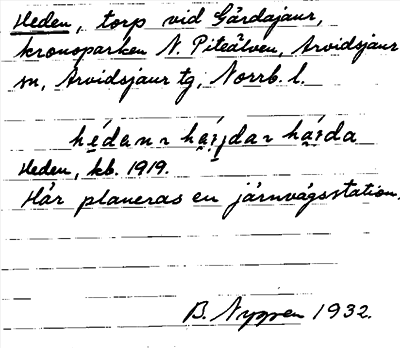 Heden, torp vid Gårdajaur,
kronoparken N. Piteälven, Arvidsjaur
sn, Arvidsjaur tg, Norrb. l.
Heden, kb. 1919.
Här planeras en järnvägsstation.
B. Nygren 1932.